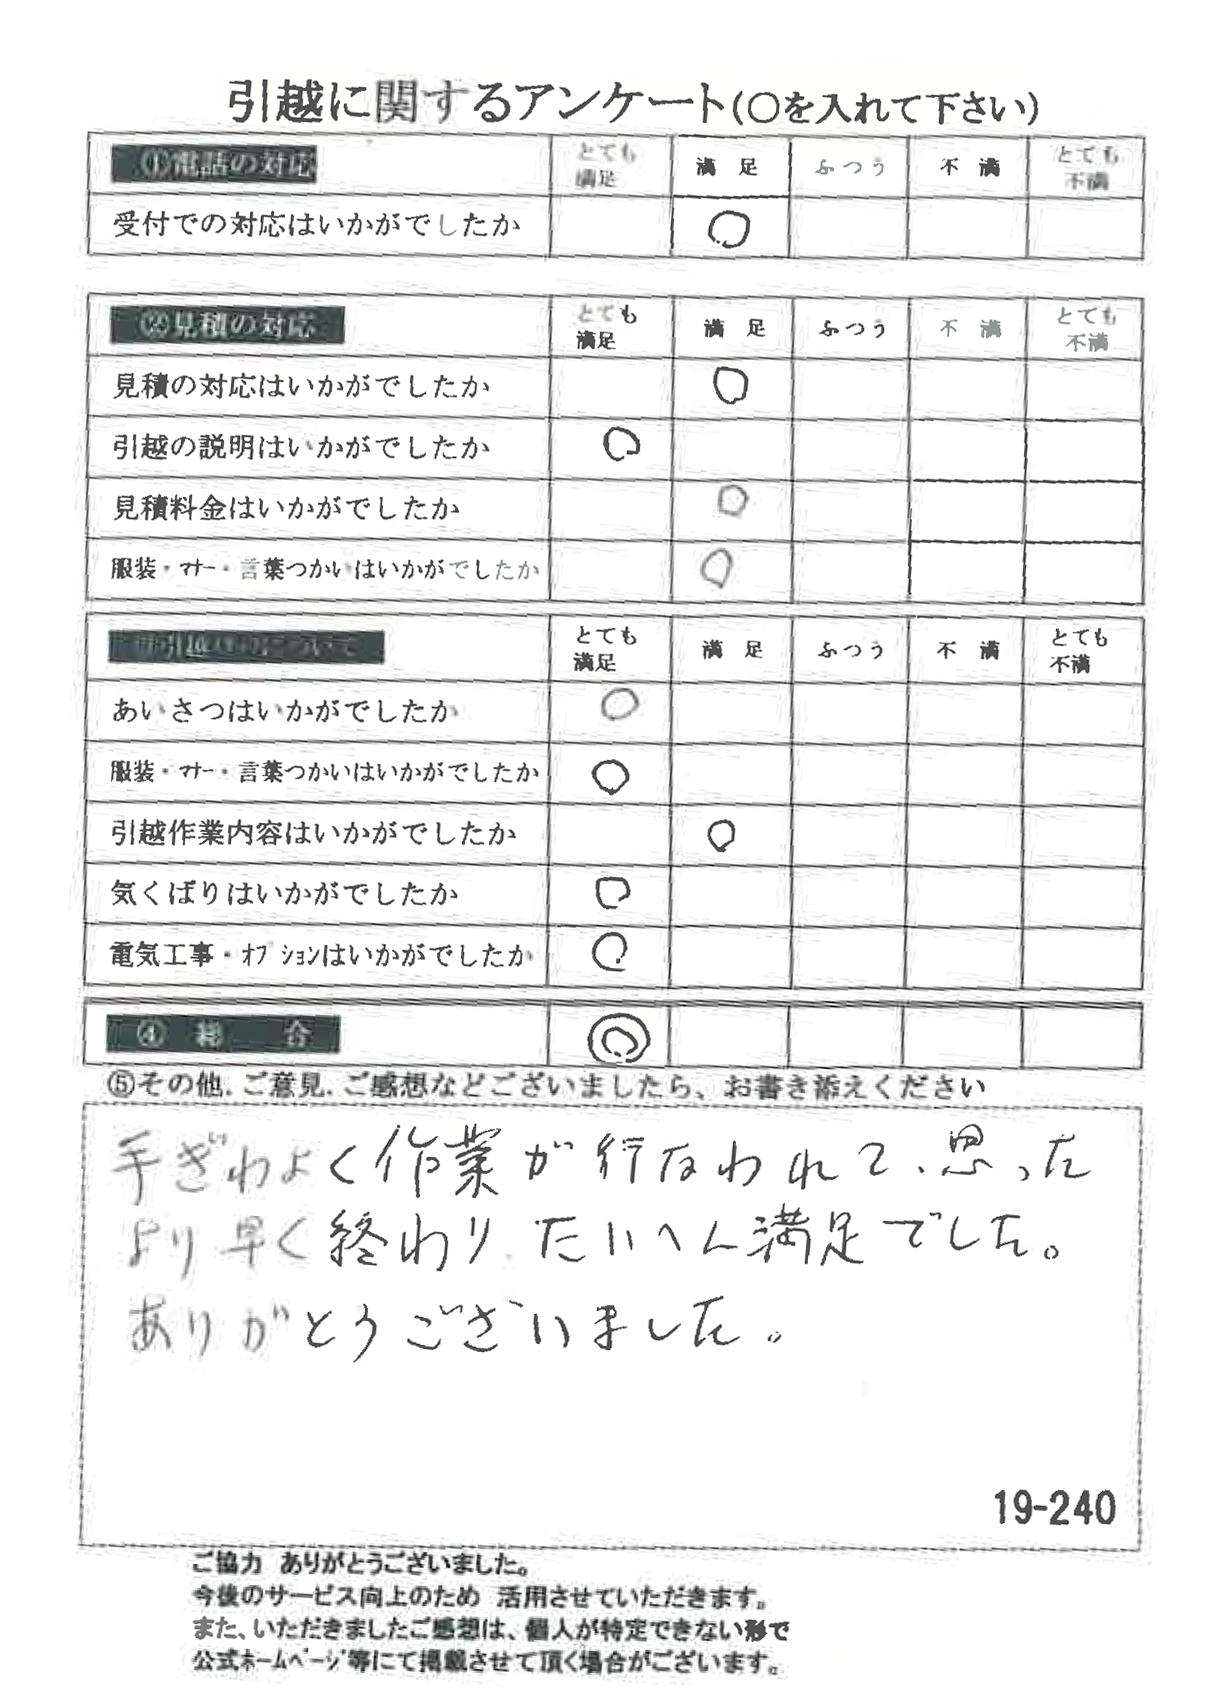 引越に関するアンケート(〇を入れて下さい)
①電話の対応 とても満足 満足 ふつう 不満 とても不満
受付での対応はいかがでしたか ○
②見積の対応 とても満足 満足 ふつう 不満 とても不満
見積の対応はいかがでしたか ○
引越の説明はいかがでしたか ○
見積料金はいかがでしたか ○
服装・マナー・言葉つかいはいかがでしたか ○
とても満足 満足 ふつう 不満 とても不満
あいさつはいかがでしたか ○
服装・マナー・言葉つかいはいかがでしたか ○
引越作業内容はいかがでしたか ○
気くばりはいかがでしたか ○
電気工事・オプションはいかがでしたか ○
④ 総 合 ◎
⑤その他.ご意見.ご感想などございましたら、お書き添えください
手ぎわよく作業が行なわれて、思った
より早く終わり、たいへん満足でした。
ありがとうございました。
19-240
ご協力 ありがとうございました。
今後のサービス向上のため 活用させていただきます。
また、いただきましたご感想は、個人が特定できない形で
公式ホームページ等にて掲載させて頂く場合がございます。